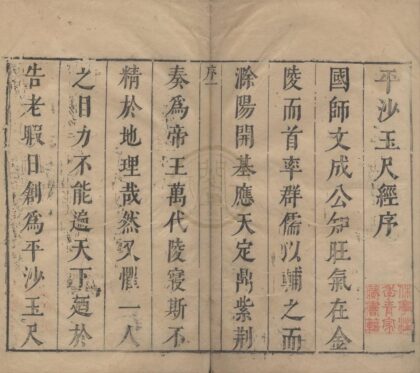 平沙玉尺經序
國師文成公知旺氣在金
陵而首率群儒以輔之而
滁陽開基應天定鼎紫荆
序一
奏爲帝王萬代陵寢斯不
精於地理哉然又懼一人
之目力不能遍天下廼於
告老暇日創爲平沙玉尺